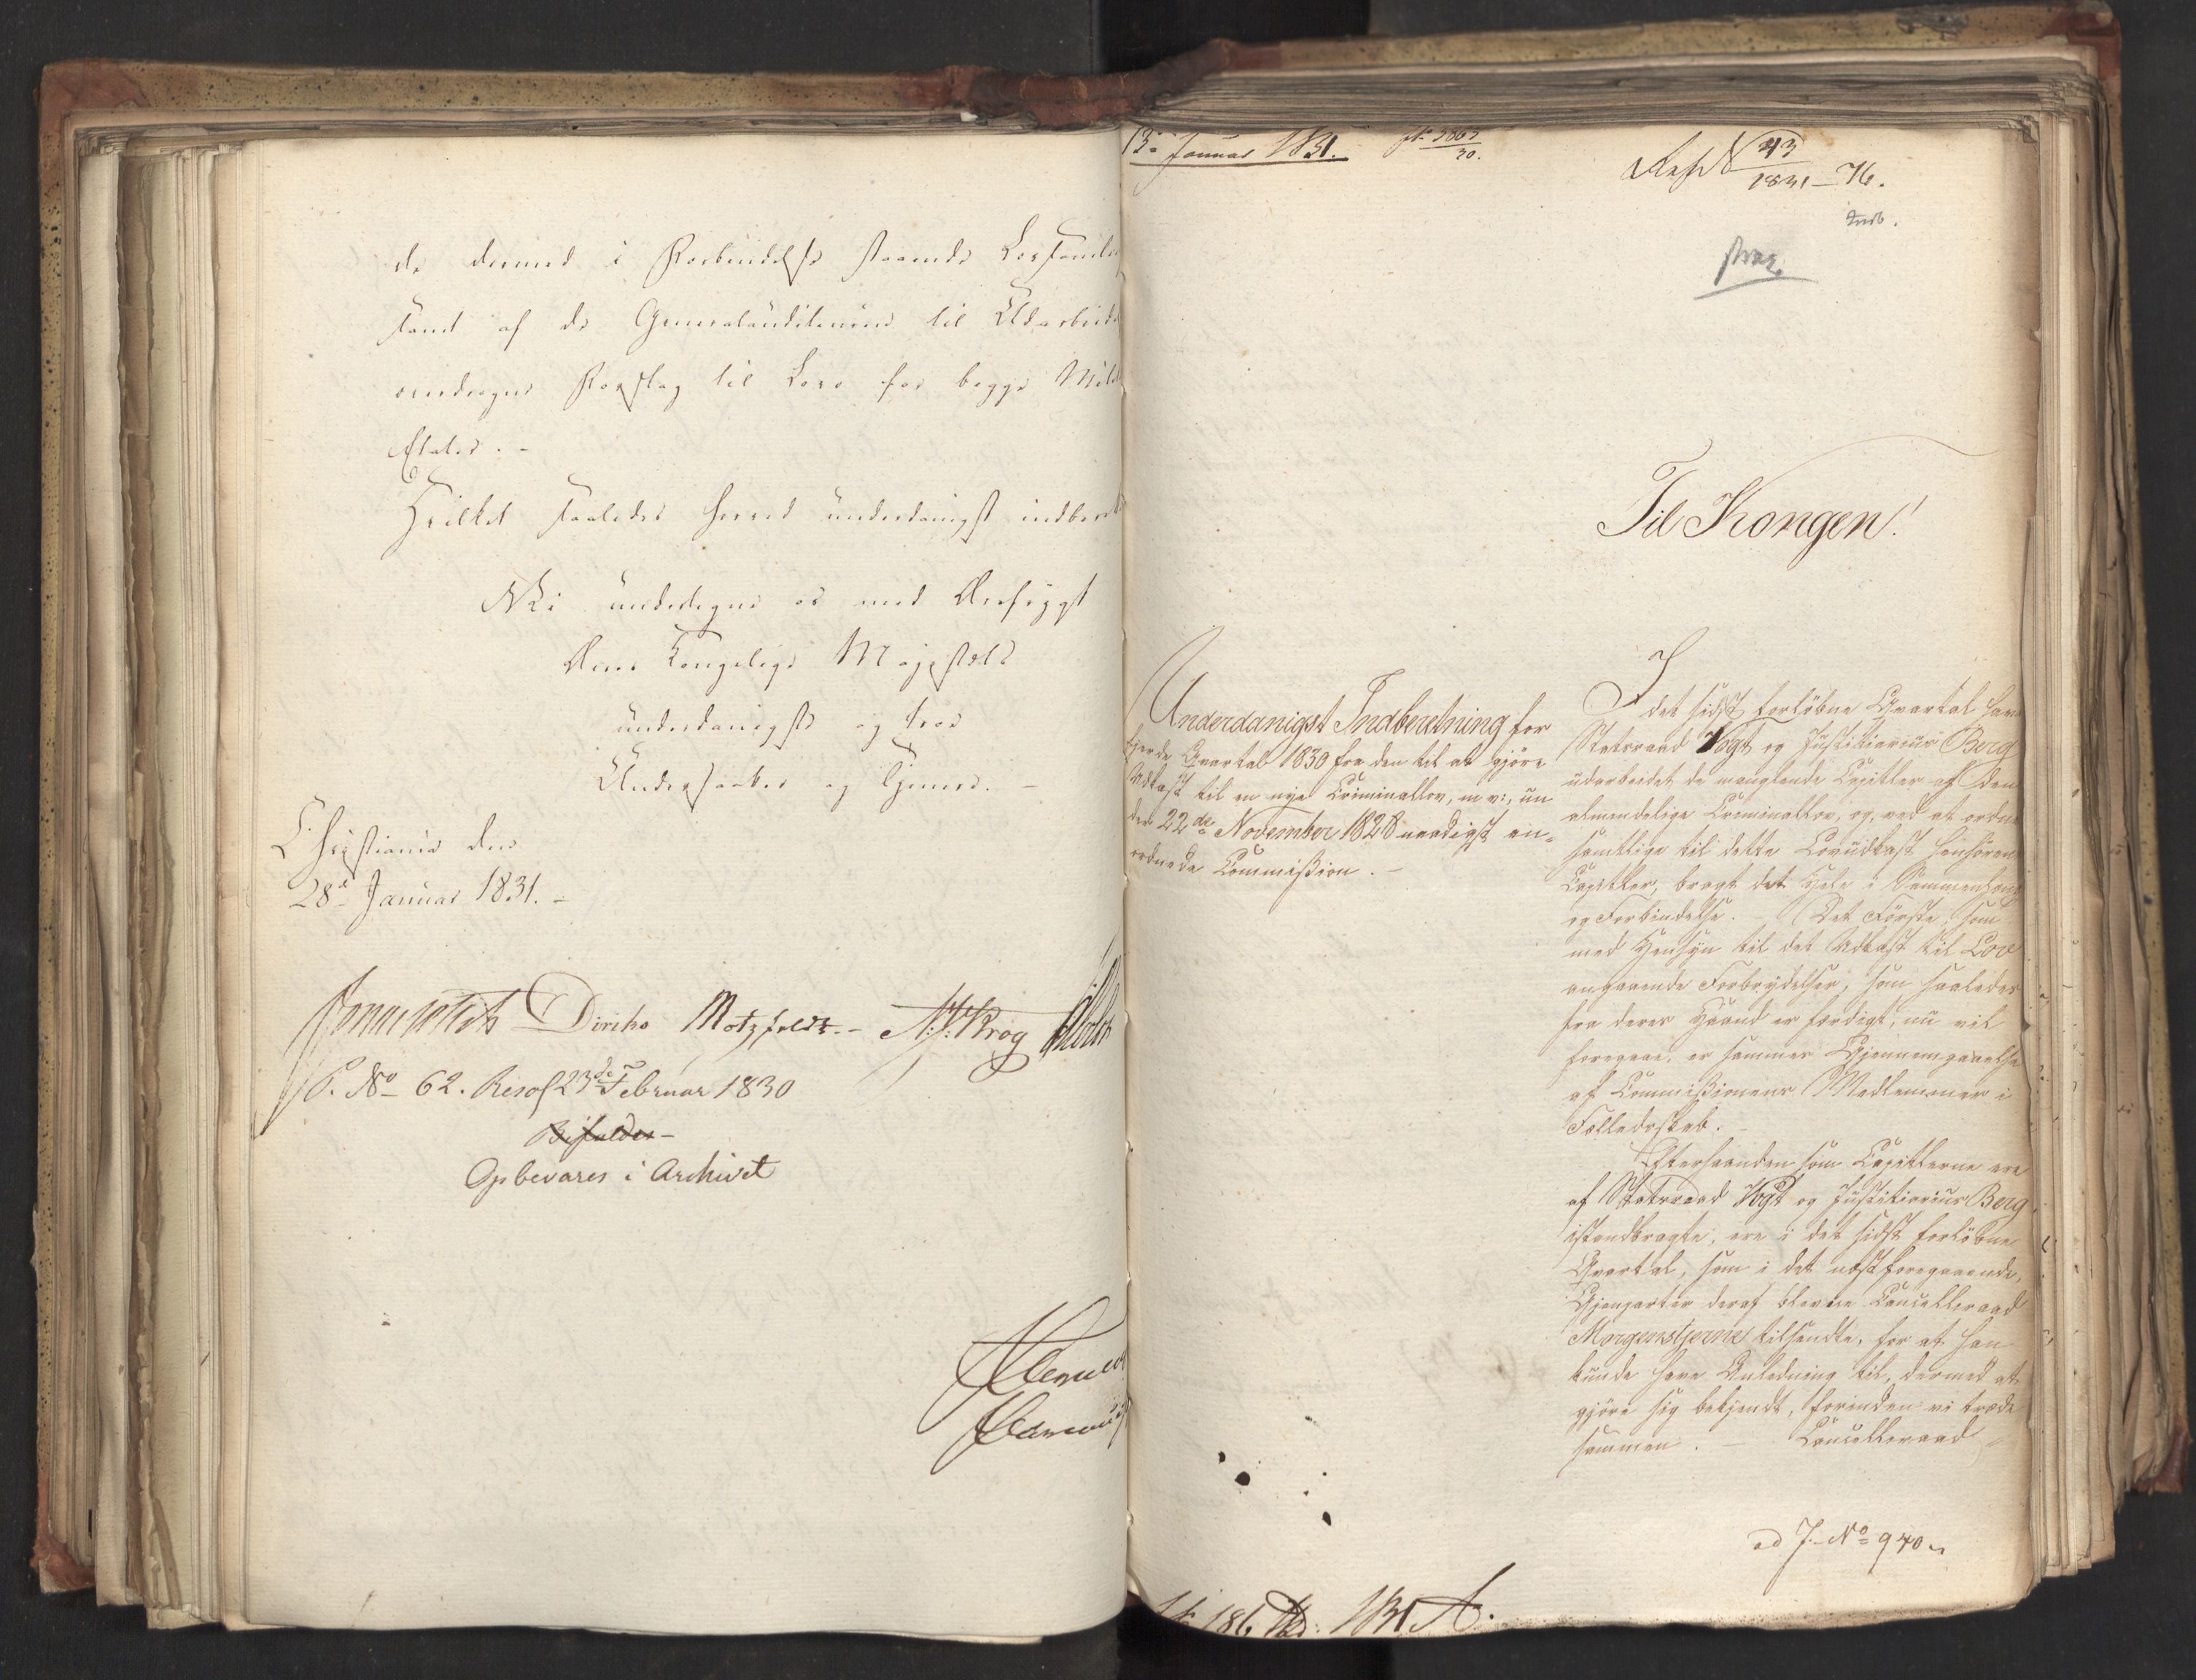 de dermed i Forbindelse staaende Lovsamlin
samt af de Generalauditeuren til Udarbeid
overdragne Forslag til Love for begge Milit
Etater. -
Hvilket saaledes herved underdanigst indberet
Vi undertegne os med Ærefrygt
Deres Kongelige Majestæts
underdanigste og troe
Undersaatter og Tjenere. -
Christiania den
28de Januar 1831. -
Diriks Motzfeldt. - Krog
P. No 62. Resol 23de Februar 1830
Bifaldes -
Opbevares i Archivet
13de Januar 1831. 30.
43
1831 - 76.
Indb.
Til Kongen!
Underdanigst Indberetning for
fjerde Qvartal 1830 fra den til at gjöre
Udkast til en nye Criminallov, m. v:, un
der 22de November 1828 naadigst an=
ordnede Commission. -
I det sidst forlöbne Qvartal have
Statsraad Vogt og Justitiarius Berg
udarbeidet de manglende Capitler af den
almindelige Criminallov, og, ved at ordne
samtlige til dette Lovudkast henhören
Capitler, bragt det Hele i Sammenhæng
og Forbindelse. - Det Förste, som
med Hensyn til det Udkast til Lov
angaaende Forbrydelser, som saaledes
fra deres Haand er færdigt, nu vil
foregaae, er sammes Gjennemgaaelse
af Commissionens Medlemmer i
Fælledsskab. -
Efterhaanden som Capitlerne ere
af Statsraad Vogt og Justitiarius Berg
istandbragte, ere i det sidst forlöbne
Qvartal, som i det næstforegaaende,
Gjenparter deraf blevne Cancelleraad
Morgenstjerne tilsendte, for at han
kunde have Anledning til, dermed at
gjöre sig bekjendt, forinden vi træde
sammen. - Cancelleraad
ad J. No 940
186 1831 A.